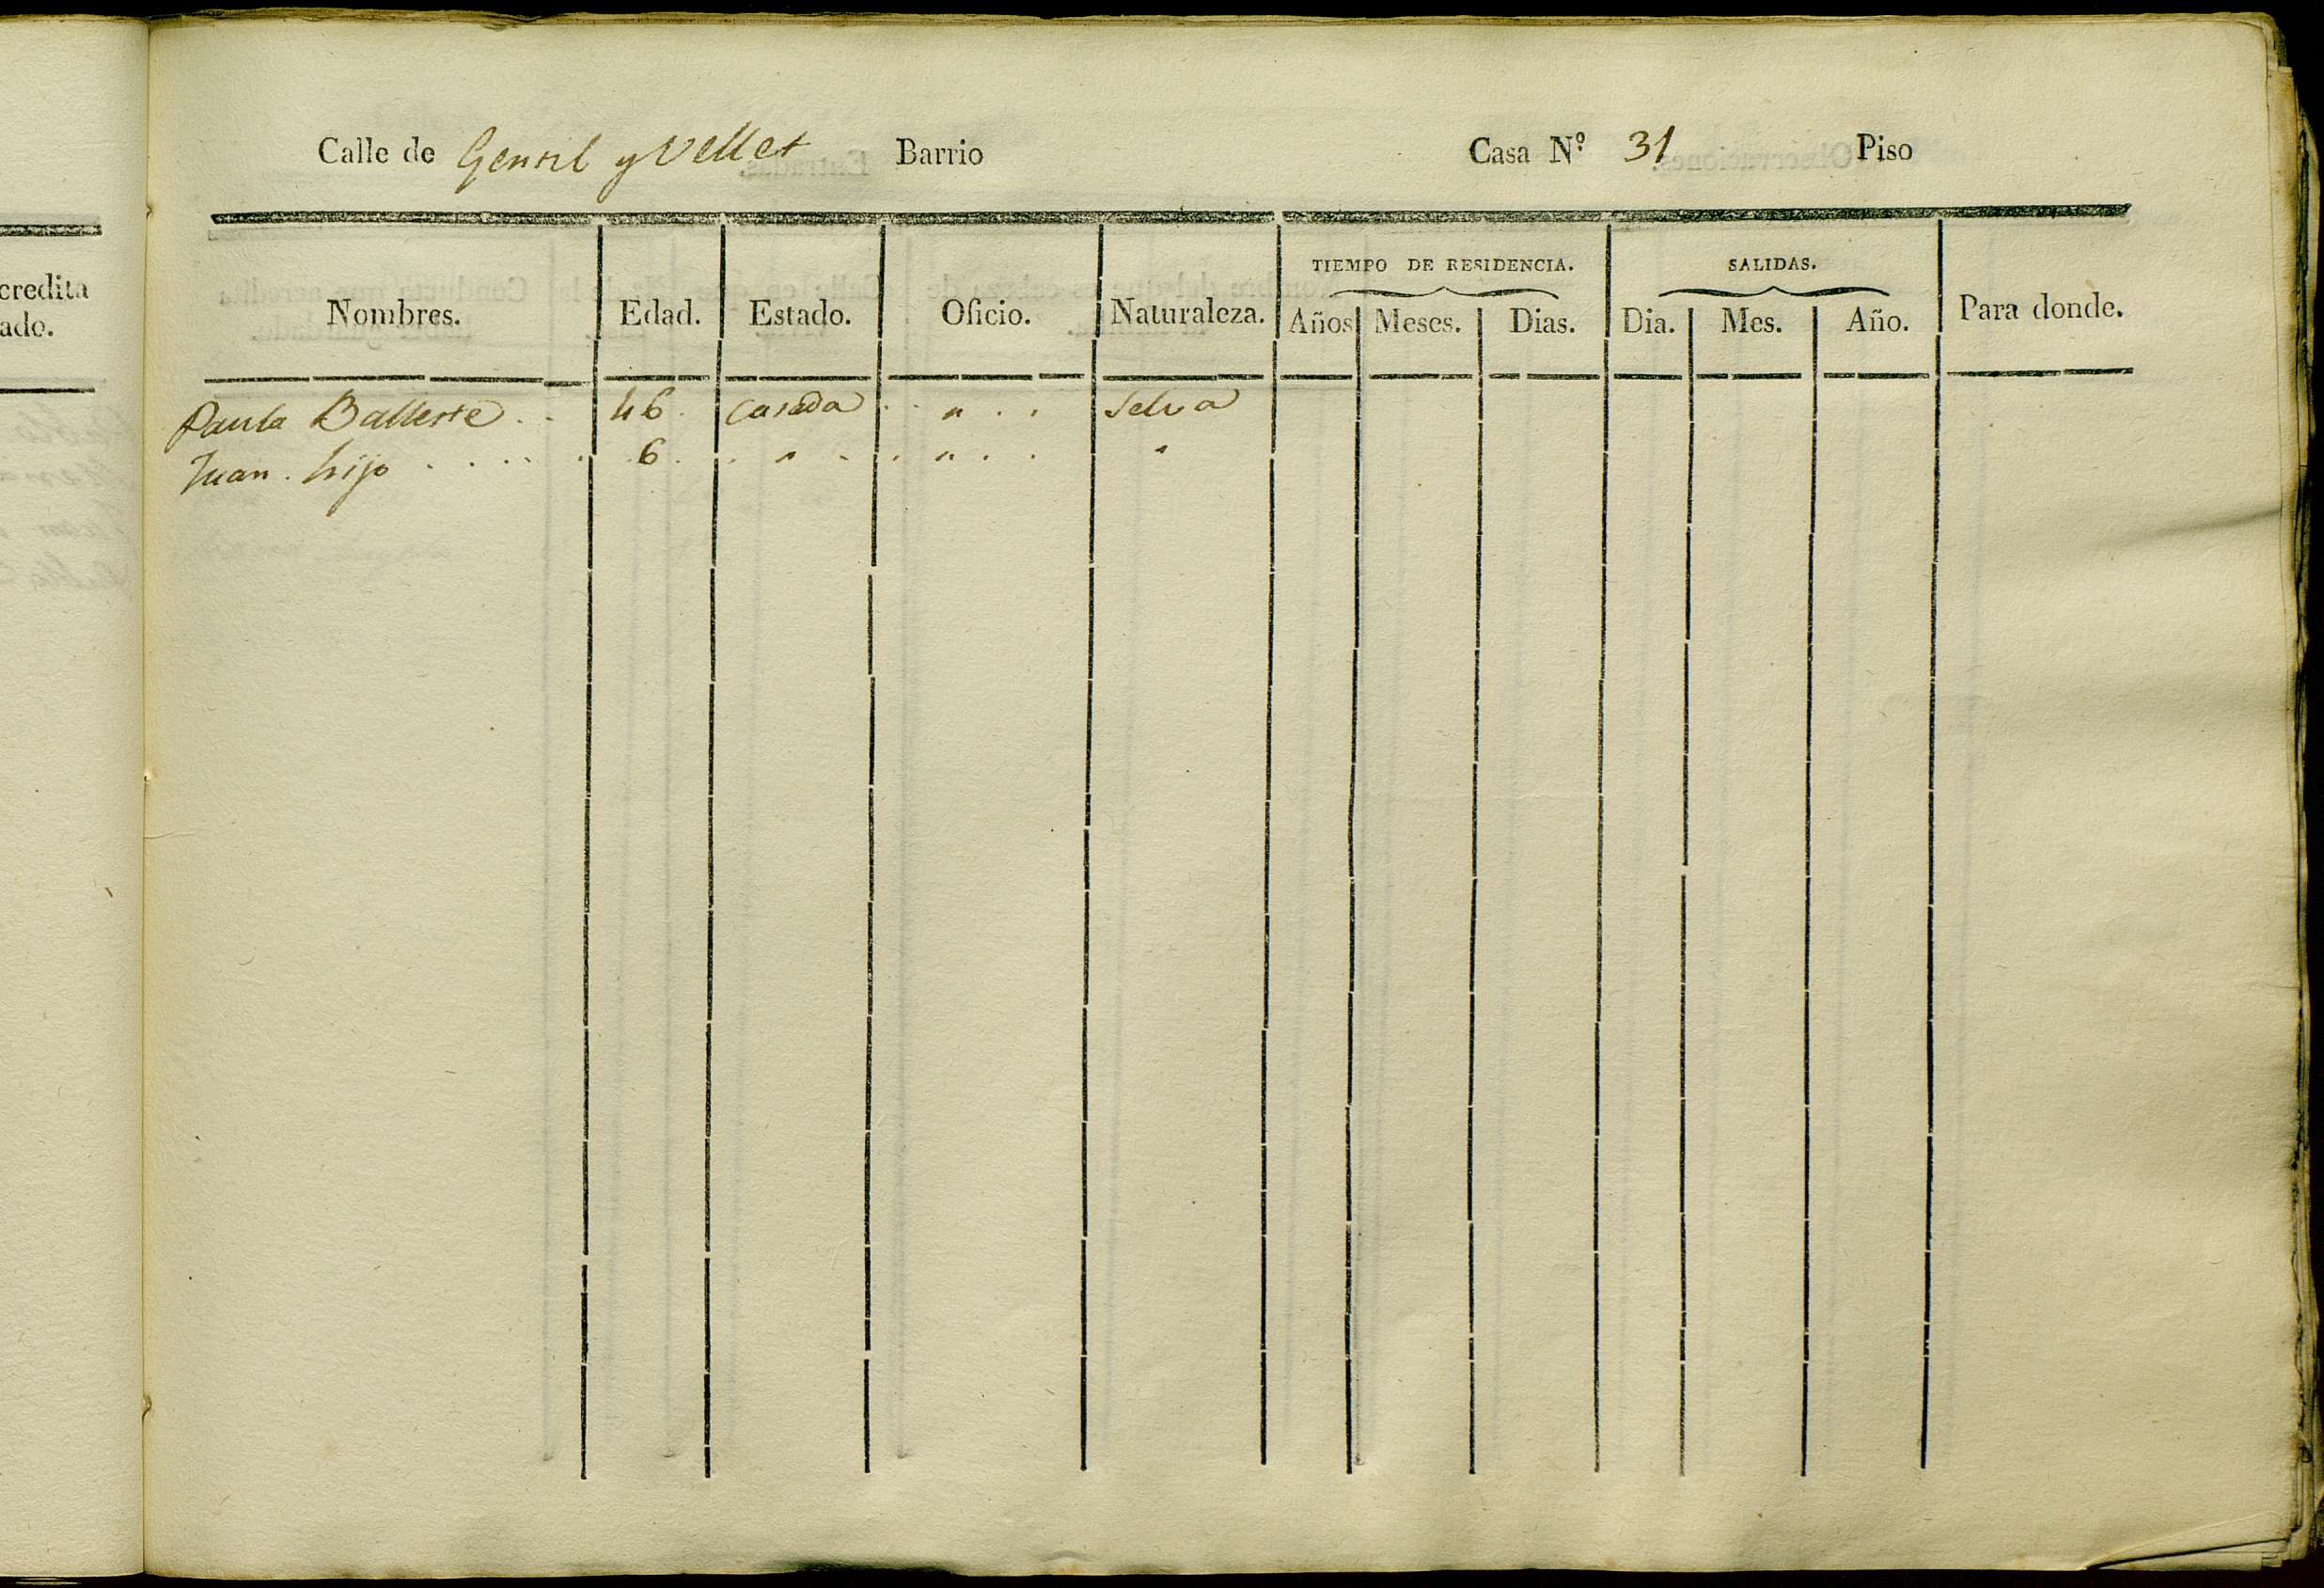 Calle de Gentil y Vellet Barrio Casa N.º 31 Piso
TIEMPO DE RESIDENCIA. SALIDAS.
Nombres. Edad. Estado. Oficio. Naturaleza. Años Meses. Dias. Dia. Mes. Año. Para donde.
Paula Balleste . . 46 . Casada . . " . . Selva
Juan . hijo . . . . . 6 . . " . . " . . "
credita
ado.